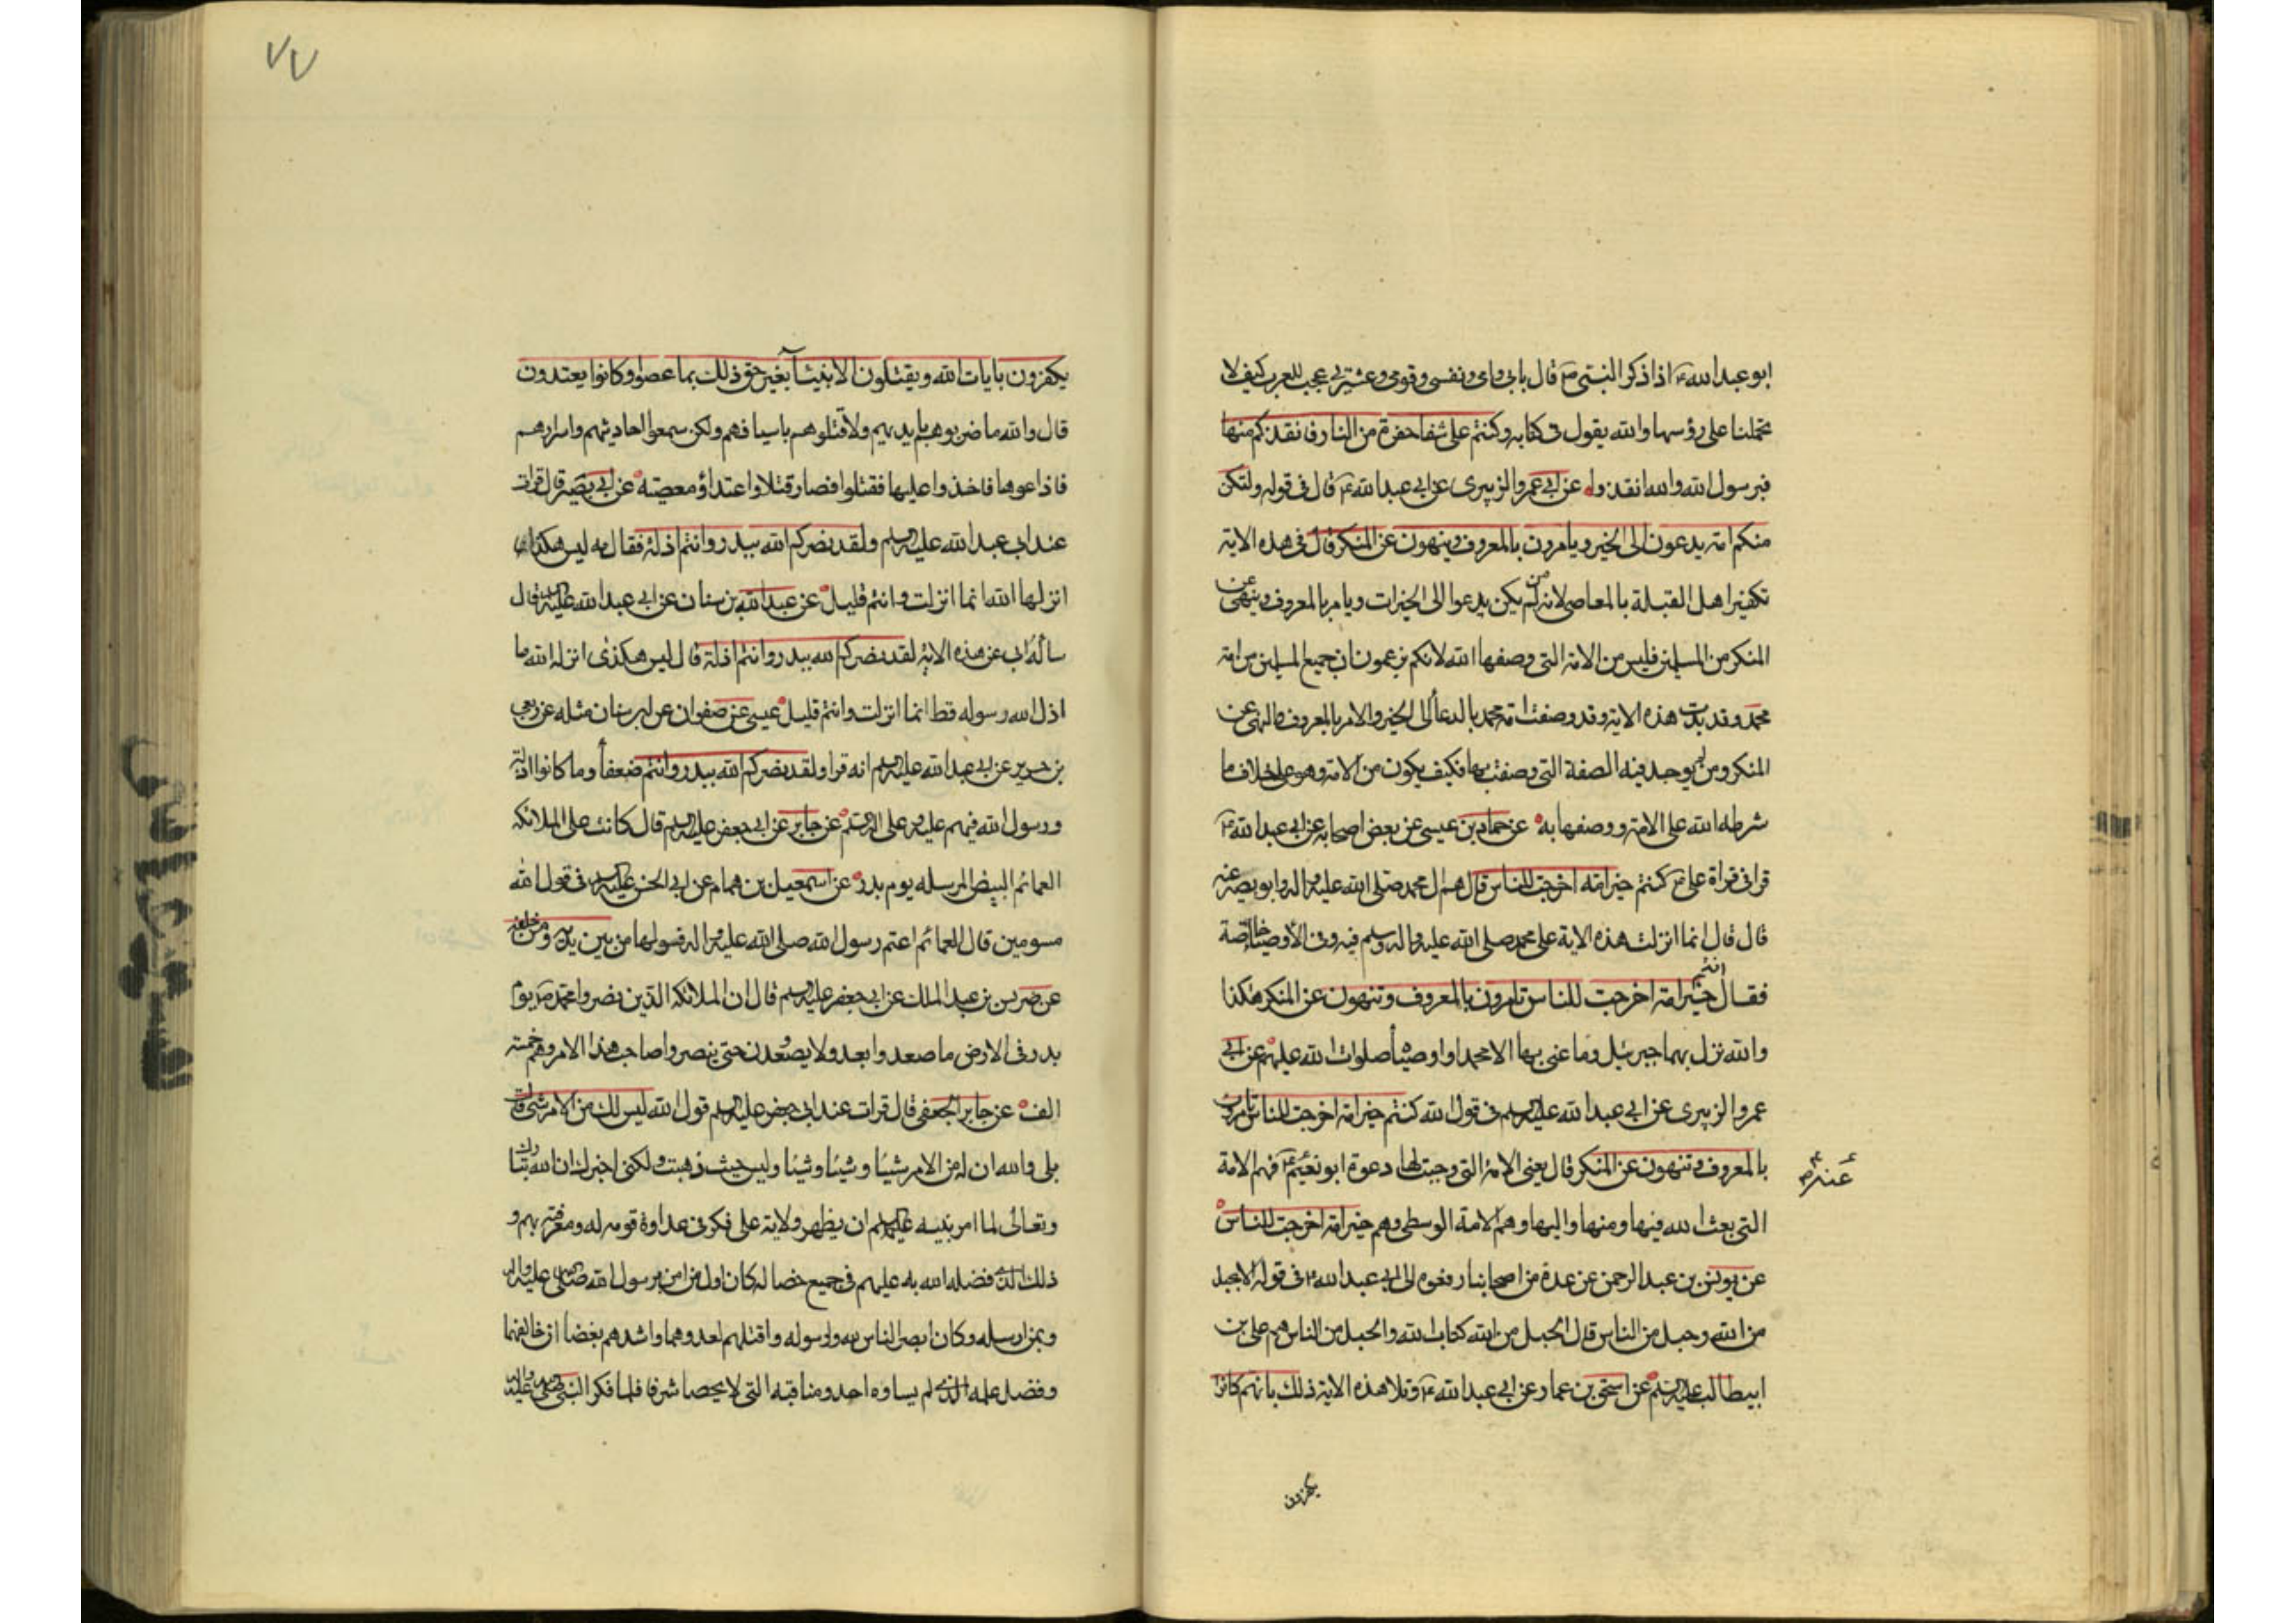 ابو عبد الله ع اذا ذكر النبي ص قال بابي وامي ونفسي وقومي وعشيرتي عجب للعرب كيف لا
تحملنا على رؤسها والله يقول في كتابه وكنتم على شفا حفرة من النار فانقذكم منها
فبرسول الله والله انقذوا عن ابي عمرو الزبيري عن ابي عبد الله ع قال في قوله ولتكن
منكم امة يدعون الى الخير ويامرون بالمعروف وينهون عن المنكر قال في هذه الاية
تكفير اهل القبلة بالمعاصي لانه من لم يكن يدعوا الى الخيرات ويامر بالمعروف وينهى عن
المنكر من المسلمين فليس من الامة التي وصفها الله لانكم تزعمون ان جميع المسلمين من امة
محمد وقد بدت هذه الاية وقد وصفت امة محمد بالدعاء الى الخير والامر بالمعروف والنهي عن
المنكر ومن لم يوجد فيه الصفة التي وصفت بها فكيف يكون من الامة وهو على خلاف ما
شرطه الله على الامة ووصفها به عن حماد بن عيسى عن بعض اصحابه عن ابي عبد الله ع
قرا في قراة علي ع كنتم خير امة اخرجت للناس قال هم ال محمد صلى الله عليه واله وابو بصير عنه
قال قال انما انزلت هذه الاية على محمد صلى الله عليه واله وسلم فيه وفي الاوصياء خاصة
فقال انتم خير امة اخرجت للناس تامرون بالمعروف وتنهون عن المنكر هكذا
والله نزل بها جبرئيل وما عنى بها الا محمدا واوصياءه صلوات الله عليهم عن ابي
عمرو الزبيري عن ابي عبد الله عليه السلم في قول الله كنتم خير امة اخرجت للناس تامرون
بالمعروف وتنهون عن المنكر قال يعني الامة التي وجبت لها دعوة ابرهيم ع فهم الامة
التي بعث الله فيها ومنها واليها وهم الامة الوسطى وهم خير امة اخرجت للناس
عن يونس بن عبد الرحمن عن عدة من اصحابنا رفعوه الى ابي عبد الله ع في قوله الا بحبل
من الله وحبل من الناس قال الحبل من الله كتاب الله والحبل من الناس هم علي بن
ابيطالب عليه السلم عن اسحق بن عمار عن ابي عبد الله ع وتلا هذه الاية ذلك بانهم كانوا
يكفرون
٧٧
يكفرون بايات الله ويقتلون الانبياء بغير حق ذلك بما عصوا وكانوا يعتدون
قال والله ما ضربوهم بايديهم ولا قتلوهم باسيافهم ولكن سمعوا احاديثهم واسرارهم
فاذاعوها فاخذوا عليها فقتلوا فصار قتلا واعتداء ومعصية عن ابي بصير قال قرات
عند ابي عبد الله عليه السلم ولقد نصركم الله ببدر وانتم اذلة فقال مه ليس هكذا
انزلها الله انما انزلت وانتم قليل عن عبد الله بن سنان عن ابي عبد الله عليه السلم قال
ساله ابي عن هذه الاية لقد نصركم الله ببدر وانتم اذلة قال ليس هكذى انزله الله ما
اذل الله رسوله قط انما انزلت وانتم قليل عيسى عن صفوان عن ابن سنان مثله عن ربعي
بن حريز عن ابي عبد الله عليه السلم انه قرا ولقد نصركم الله ببدر وانتم ضعفاء وما كانوا اذلة
ورسول الله فيهم عليه وعلى اله السلم عن جابر عن ابي جعفر عليه السلم قال كانت على الملائكة
العمائم البيض المرسله يوم بدر عن اسمعيل بن همام عن ابي الحسن عليه السلم في قول الله
مسومين قال العمائم اعتم رسول الله صلى الله عليه واله فسدلها من بين يديه ومن خلفه
عن ضريس بن عبد الملك عن ابي جعفر عليه السلم قال ان الملائكة الذين نصروا محمد ص يوم
بدر في الارض ما صعدوا بعد ولا يصعدون حتى ينصروا صاحب هذا الامر وهم خمسة
الف عن جابر الجعفي قال قرات عند ابي جعفر عليه السلم قول الله ليس لك من الامر شئ قال
بلى والله ان له من الامر شيئا وشيئا وشيئا وليس حيث ذهبت ولكني اخبرك ان الله تبارك
وتعالى لما امر نبيه عليه السلم ان يظهر ولاية علي فكر في عداوة قومه له ومعرفته بهم و
ذلك الذي فضله الله به عليهم في جميع خصاله كان اول من امن برسول الله صلى الله عليه واله
وبمن ارسله وكان انصر الناس لله ولرسوله واقتلهم لعدوهما واشدهم بغضا لمن خالفهما
وفضل علمه الذي لم يساوه احد ومناقبه التي لا يحصا شرفا فلما فكر النبي صلى الله عليه واله